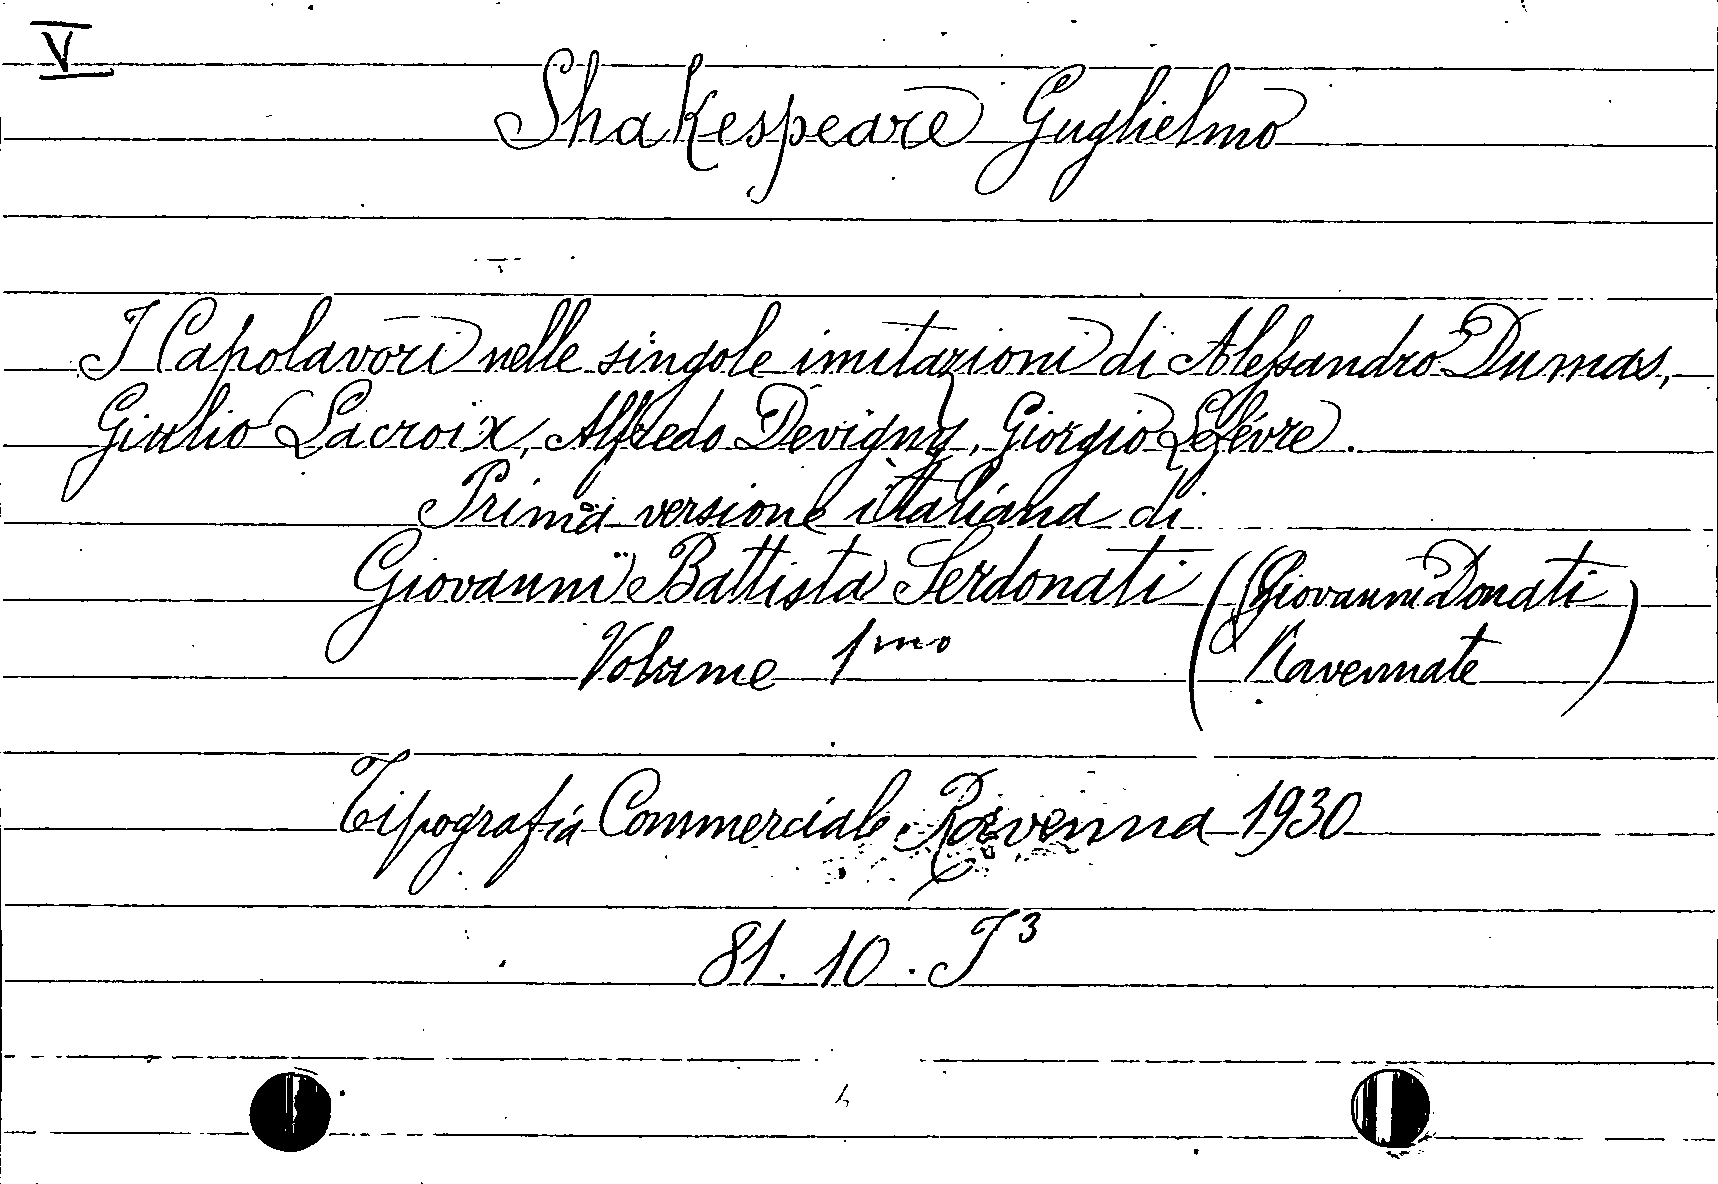 V
Shakespeare Guglielmo
I Capolavori nelle singole imitazioni di Alessandro Dumas,
Giulio Lacroix, Alfredo Devigny, Giorgio Lefévre.
Prima versione italiana di
Giovanni Battista Serdonati (Giovanni Donati
Volume 1mo Ravennate)
Tipografia Commerciale Ravenna 1930
81. 10. I3